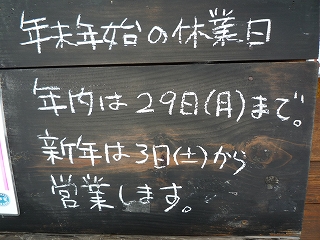 年末年始の休業日
年内は29日(月)まで。
新年は3日(土)から
営業します。